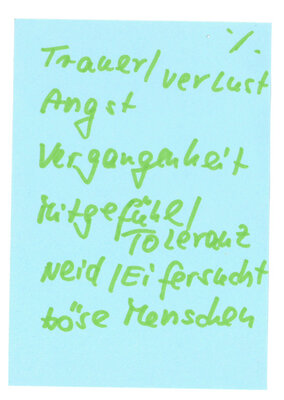 ·/.
Trauer/verlust
Angst
Vergangenheit
Mitgefühle/
Toleranz
Neid/Eifersucht
böse Menschen